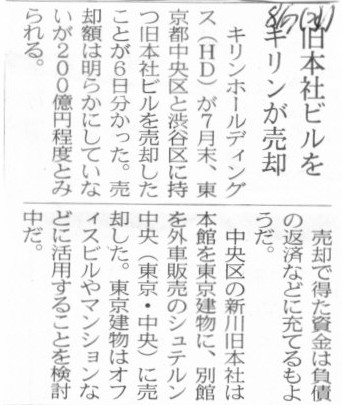 旧本社ビルを
キリンが売却
キリンホールディング
ス（HD）が７月末、東
京都中央区と渋谷区に持
つ旧本社ビルを売却した
ことが６日分かった。売
却額は明らかにしていな
いが２００億円程度とみ
られる。
売却で得た資金は負債
の返済などに充てるもよ
うだ。
中央区の新川旧本社は
本館を東京建物に、別館
を外車販売のシュテルン
中央（東京・中央）に売
却した。東京建物はオフ
ィスビルやマンションな
どに活用することを検討
中だ。